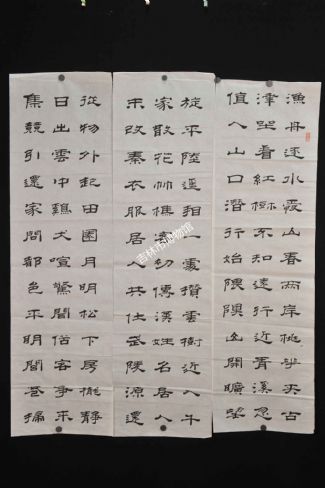 漁舟逐水愛山春兩岸桃花夾古
津坐看紅樹不知遠行近青溪忽
值人山口潛行始隈隩山開曠望
旋平陸遥相一處攢雲樹近入千
家散花竹樵客初傳漢姓名居人
未改秦衣服居人共住武陵源還
從物外起田園月明松下房櫳靜
日出雲中鷄犬喧驚聞俗客爭來
集競引還家問都邑平明閭巷掃
吉林市博物馆